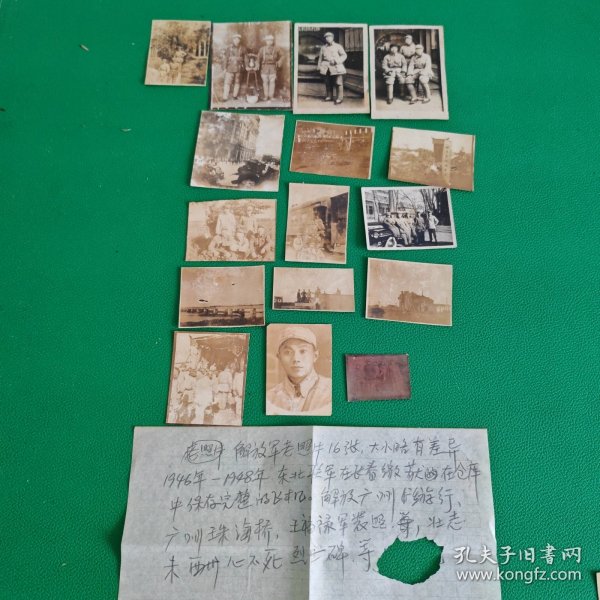 老照片 解放军老照片16张,大小略有差异
1946年－1948年 东北 军在长春缴获的在仓库
中保存完整的飞机。解放广州 游行.
广州珠海桥, 王福禄军装照 等, 壮志
未酬心不死 烈士碑.等
孔夫子旧书网
www.kongfz.com